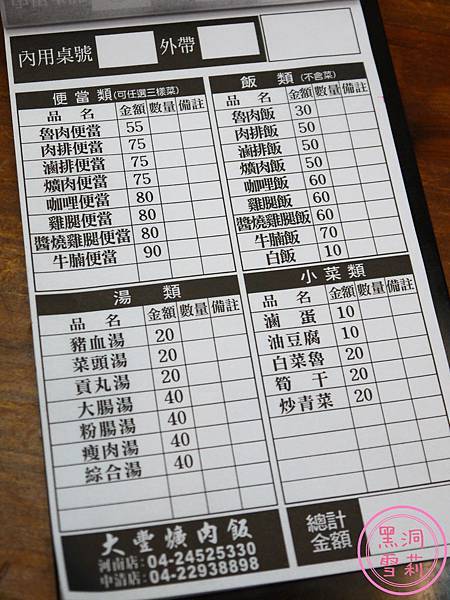 內用桌號 外帶
便當類(可任選三樣菜)
品名 金額 數量 備註
魯肉便當 55
肉排便當 75
滷排便當 75
爌肉便當 75
咖哩便當 80
雞腿便當 80
醬燒雞腿便當 80
牛腩便當 90
飯類(不含菜)
品名 金額 數量 備註
魯肉飯 30
肉排飯 50
滷排飯 50
爌肉飯 50
咖哩飯 60
雞腿飯 60
醬燒雞腿飯 60
牛腩飯 70
白飯 10
湯類
品名 金額 數量 備註
豬血湯 20
菜頭湯 20
貢丸湯 20
大腸湯 40
粉腸湯 40
瘦肉湯 40
綜合湯 40
小菜類
品名 金額 數量 備註
滷蛋 10
油豆腐 10
白菜魯 20
筍干 20
炒青菜 20
大豐爌肉飯
河南店:04-24525330
中清店:04-22938898
總計
金額
黑洞
雪莉